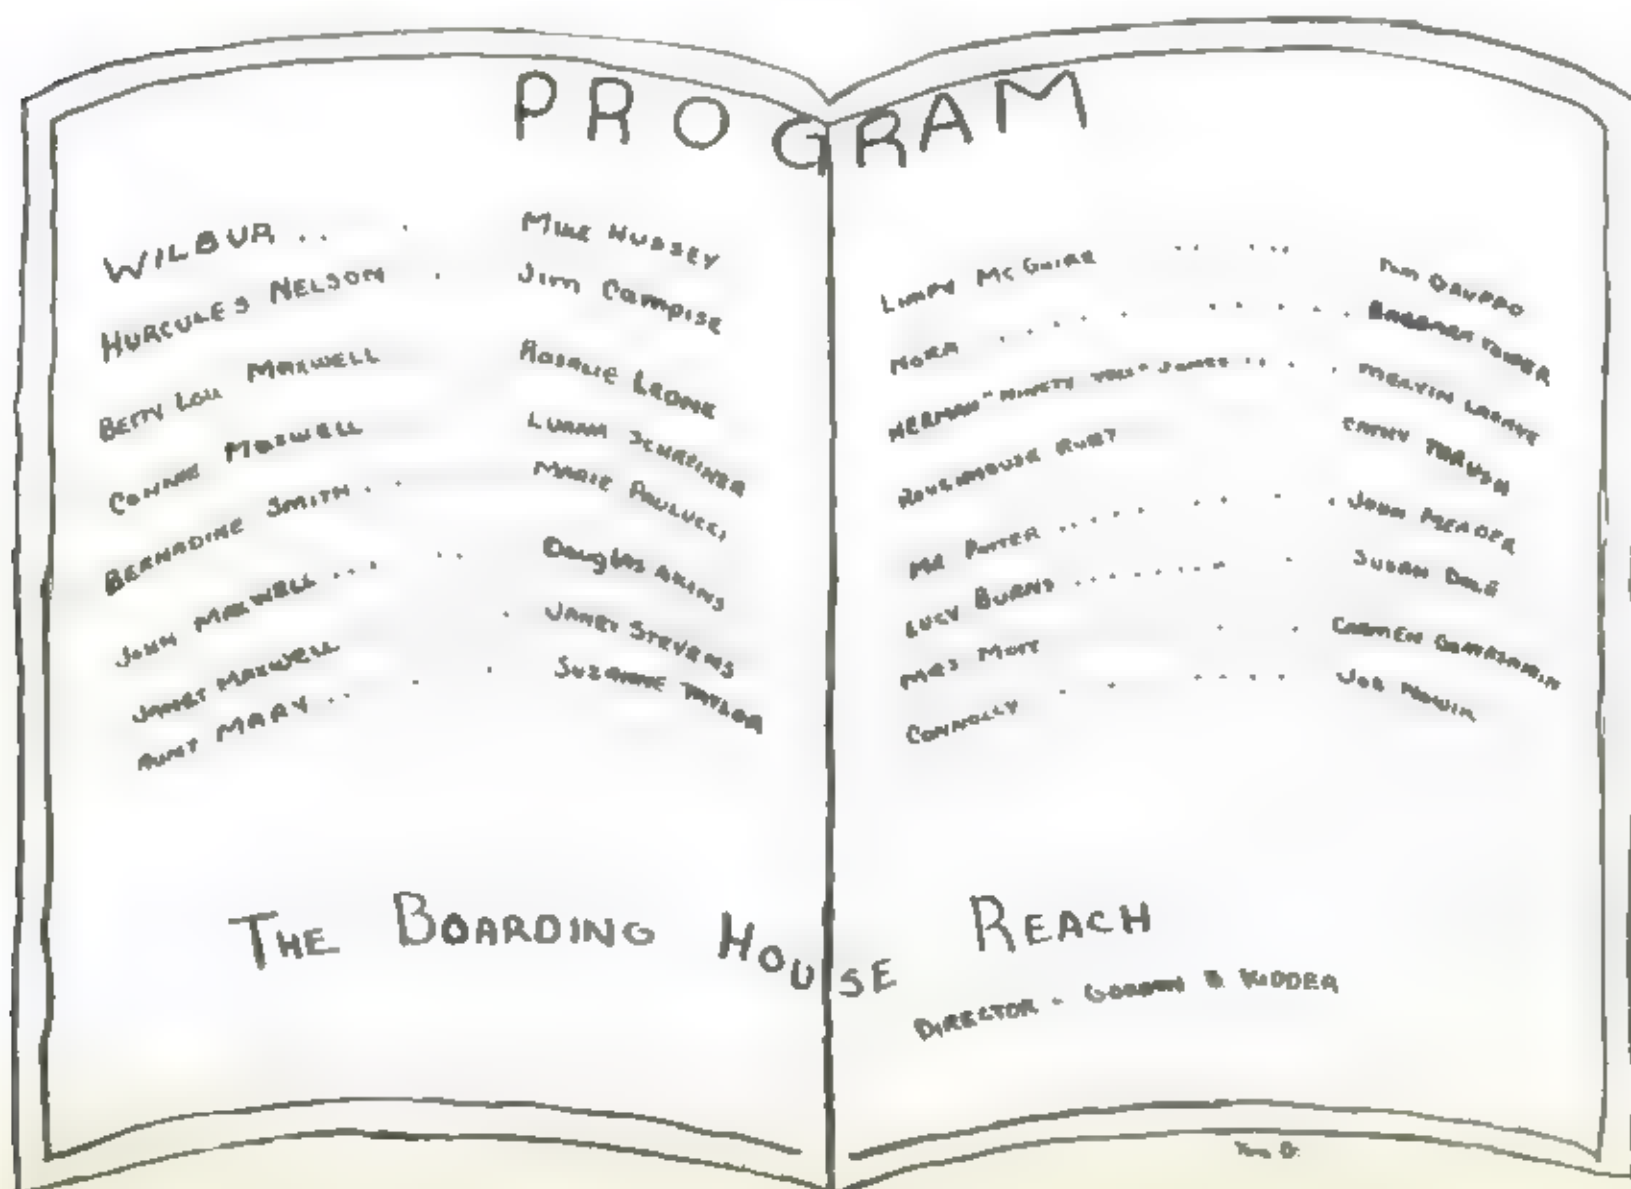 PROGRAM
WILBUR . . . MIKE HUSSEY
HURCULES NELSON . JIM CAMPISE
BETTY LOU MAXWELL ROSALIE LEONE
CONNIE MAXWELL LUANA SCHREINER
BERNADINE SMITH . . MARIE PAULUCCI
JOHN MAXWELL . . . . . DOUGLAS AKINS
JANET MAXWELL . JANET STEVENS
AUNT MARY . . . . SUZANNE TAYLOR
LIMPY MCGUIRE . . . . . TOM
NORA . . . . . . . . . . BARBARA TOWER
HERMAN "NINETY " JONES . . . . MELVIN
RUBY CATHY THRUSH
MR POTTER . . . . . . . . . JOHN MEADER
LUCY BURNS . . . . . . . . . . SUSAN DALE
MRS MOTT . . CARMEN
CONNOLLY . . . . . . JOE
THE BOARDING HOUSE REACH
DIRECTOR - GORDON B KIDDER
TOM D.